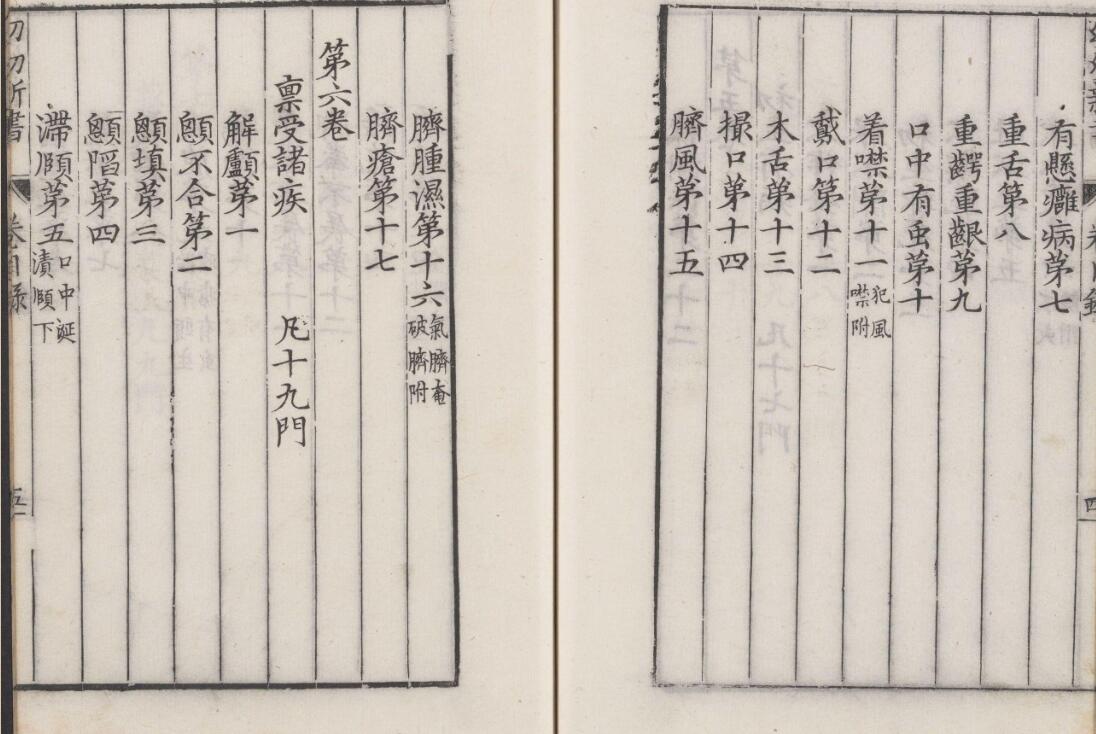 有懸癰病第七
重舌第八
重齶重齦第九
口中有䖝第十
着噤第十一犯風噤附
戴口第十二
木舌第十三
撮口第十四
臍風第十五
四
臍腫濕第十六氣臍奄破臍附
臍瘡第十七
第六卷
禀受諸疾 凡十九門
解顱第一
顖不合第二
顖填第三
顖陷第四
滯頥第五口中涎漬頥下
卷目録
五